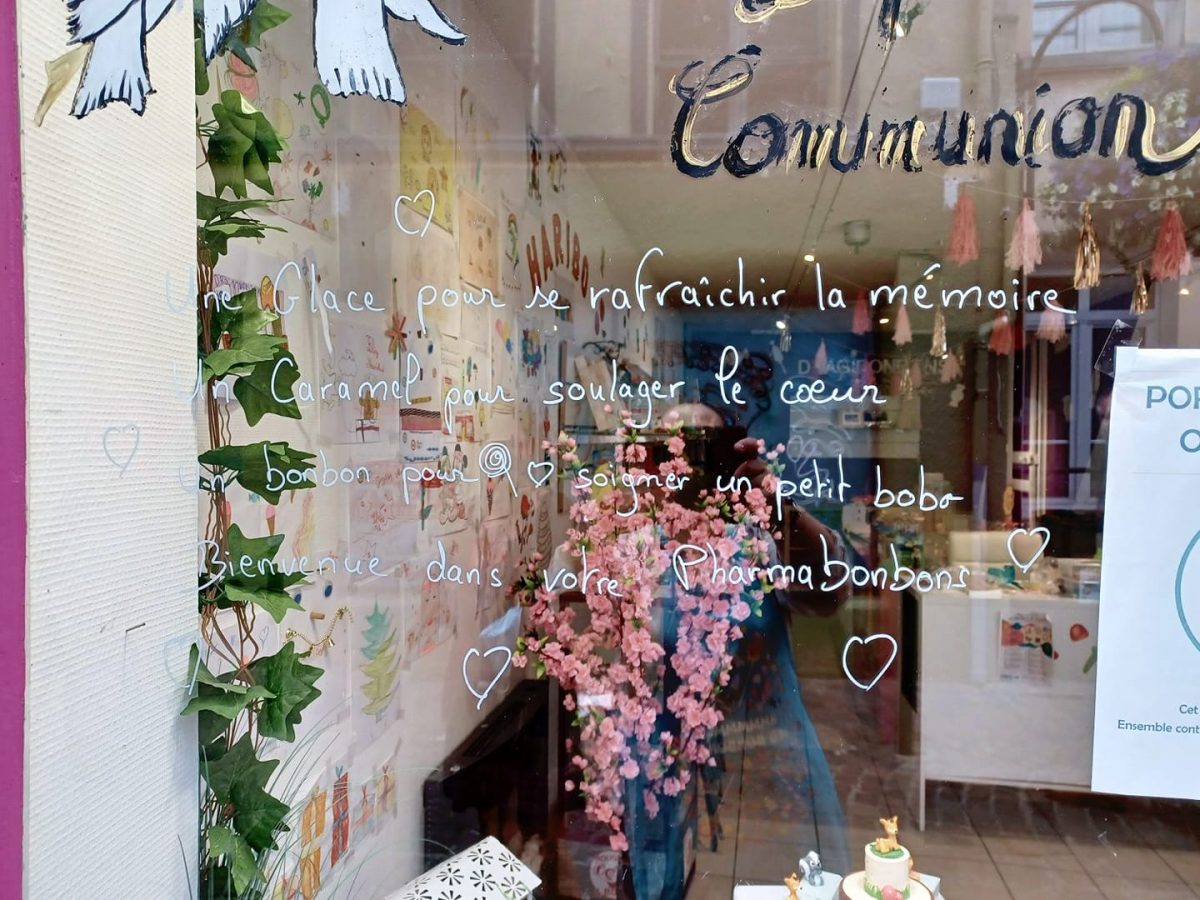 Communion
HARIBO
Une Glace pour se rafraîchir la mémoire
Un Caramel pour soulager le cœur
un bonbon pour soigner un petit bobo
Bienvenue dans votre Pharmabonbons
POR
O
Cet
Ensemble cont